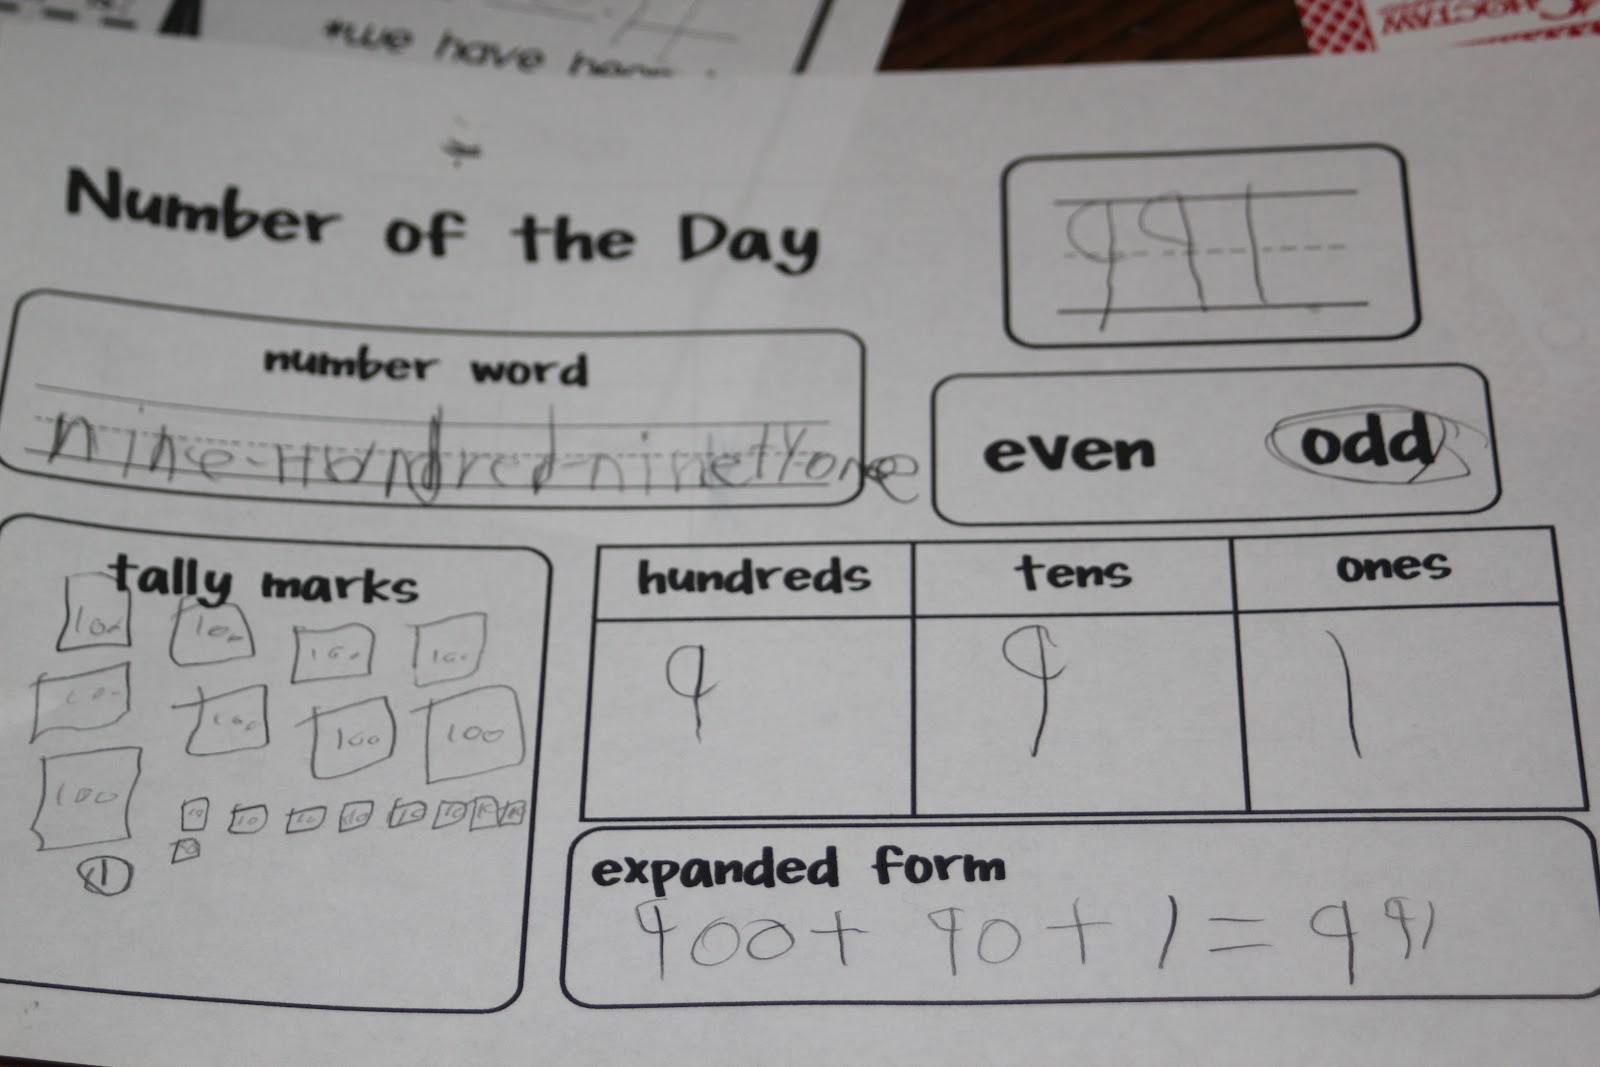 *we have
Number of the Day
991
number word
nine-Hundred-ninetyone
even odd
tally marks
100 100 100 100
100 100 100 100
100
10 10 10 10 10 10 10 10
10
1
hundreds tens ones
9 9 1
expanded form
900+ 90 + 1 = 991
CHOCTAW